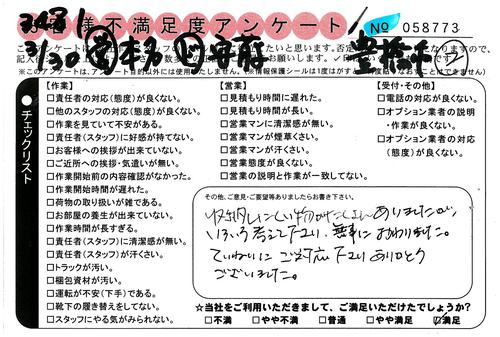 お客様不満足度アンケート
No 058773
3/30
【作業】
□責任者の対応(態度)が良くない。
□他のスタッフの対応(態度)が良くない。
□作業を見ていて不安がある。
□責任者(スタッフ)に好感が持てない。
□お客様への挨拶が出来ていない。
□ご近所への挨拶・気遣いが無い。
□作業開始前の内容確認がなかった。
□作業開始時間が遅れた。
□荷物の取り扱いが雑である。
□お部屋の養生が出来ていない。
□作業時間が長すぎる。
□責任者(スタッフ)に清潔感が無い。
□責任者(スタッフ)が汗くさい。
□トラックが汚い。
□梱包資材が汚い。
□運転が不安(下手)である。
□靴下の履き替えをしてない。
□スタッフにやる気がみられない。
【営業】
□見積もり時間に遅れた。
□見積もり時間が長い。
□営業マンに清潔感が無い。
□営業マンが煙草くさい。
□営業マンが汗くさい。
□営業態度が良くない。
□営業の説明と作業が一致してない。
【受付・その他】
□電話の対応が良くない。
□オプション業者の説明
・作業が良くない。
□オプション業者の対応
(態度)が良くない。
チェックリスト
その他、ご意見・ご要望等ありましたらお書き下さい。
収納しにくい物がたくさんありましたが、
いろいろ考えて下さり、無事におわりました。
ていねいにご対応下さりありがとう
ございました。
☆当社をご利用いただきまして、ご満足いただけたでしょうか?
□不満 □やや不満 □普通 □やや満足 ☑満足